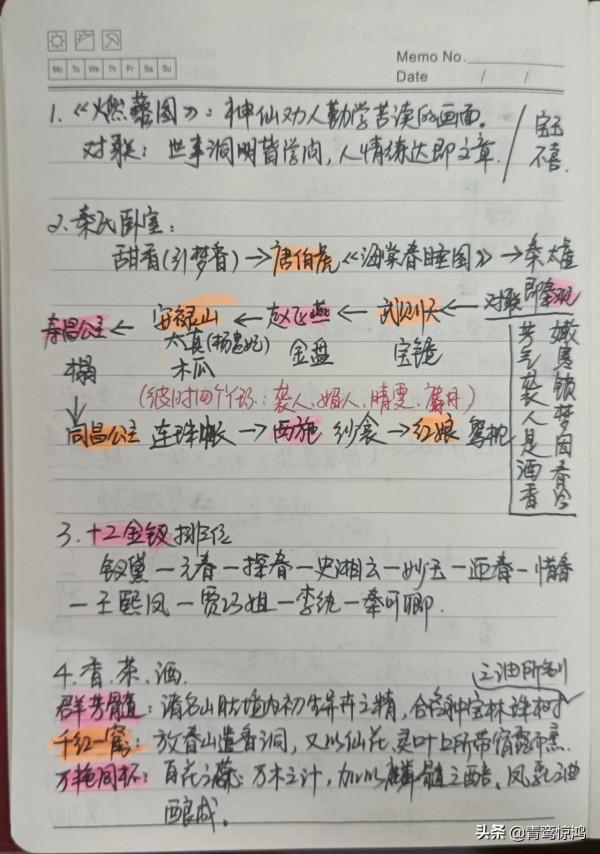 Memo No.
Mo Tu We Th Fr Sa Su
Date / /
1.《燃藜图》：神仙劝人勤学苦读的画面。
对联：世事洞明皆学问，人情练达即文章.
宝玉
不喜
2.秦氏卧室：
甜香(引梦香)→唐伯虎《海棠春睡图》→秦太虚
即秦观
寿昌公主←安禄山←赵飞燕←武则天←对联
榻 太真(杨贵妃) 金盘 宝镜
木瓜
嫩寒锁梦因春冷
芳气袭人是酒香
(彼时四个丫环：袭人、媚人、晴雯、麝月)
同昌公主 连珠帐→西施 纱衾→红娘 鸳枕
3.十二金钗排位
钗黛—元春—探春—史湘云—妙玉—迎春—惜春
—王熙凤—贾巧姐—李纨—秦可卿.
4.香.茶.酒.
之油所制
群芳髓：诸名山胜境内初生异卉之精，合各种宝林珠树
千红一窟：放春山遣香洞，又以仙花、灵叶上所带宿露而烹
万艳同杯：百花之蕊 万木之汁，加以麟髓之醅、凤乳之曲
酿成。
头条@青鸾惊鸿